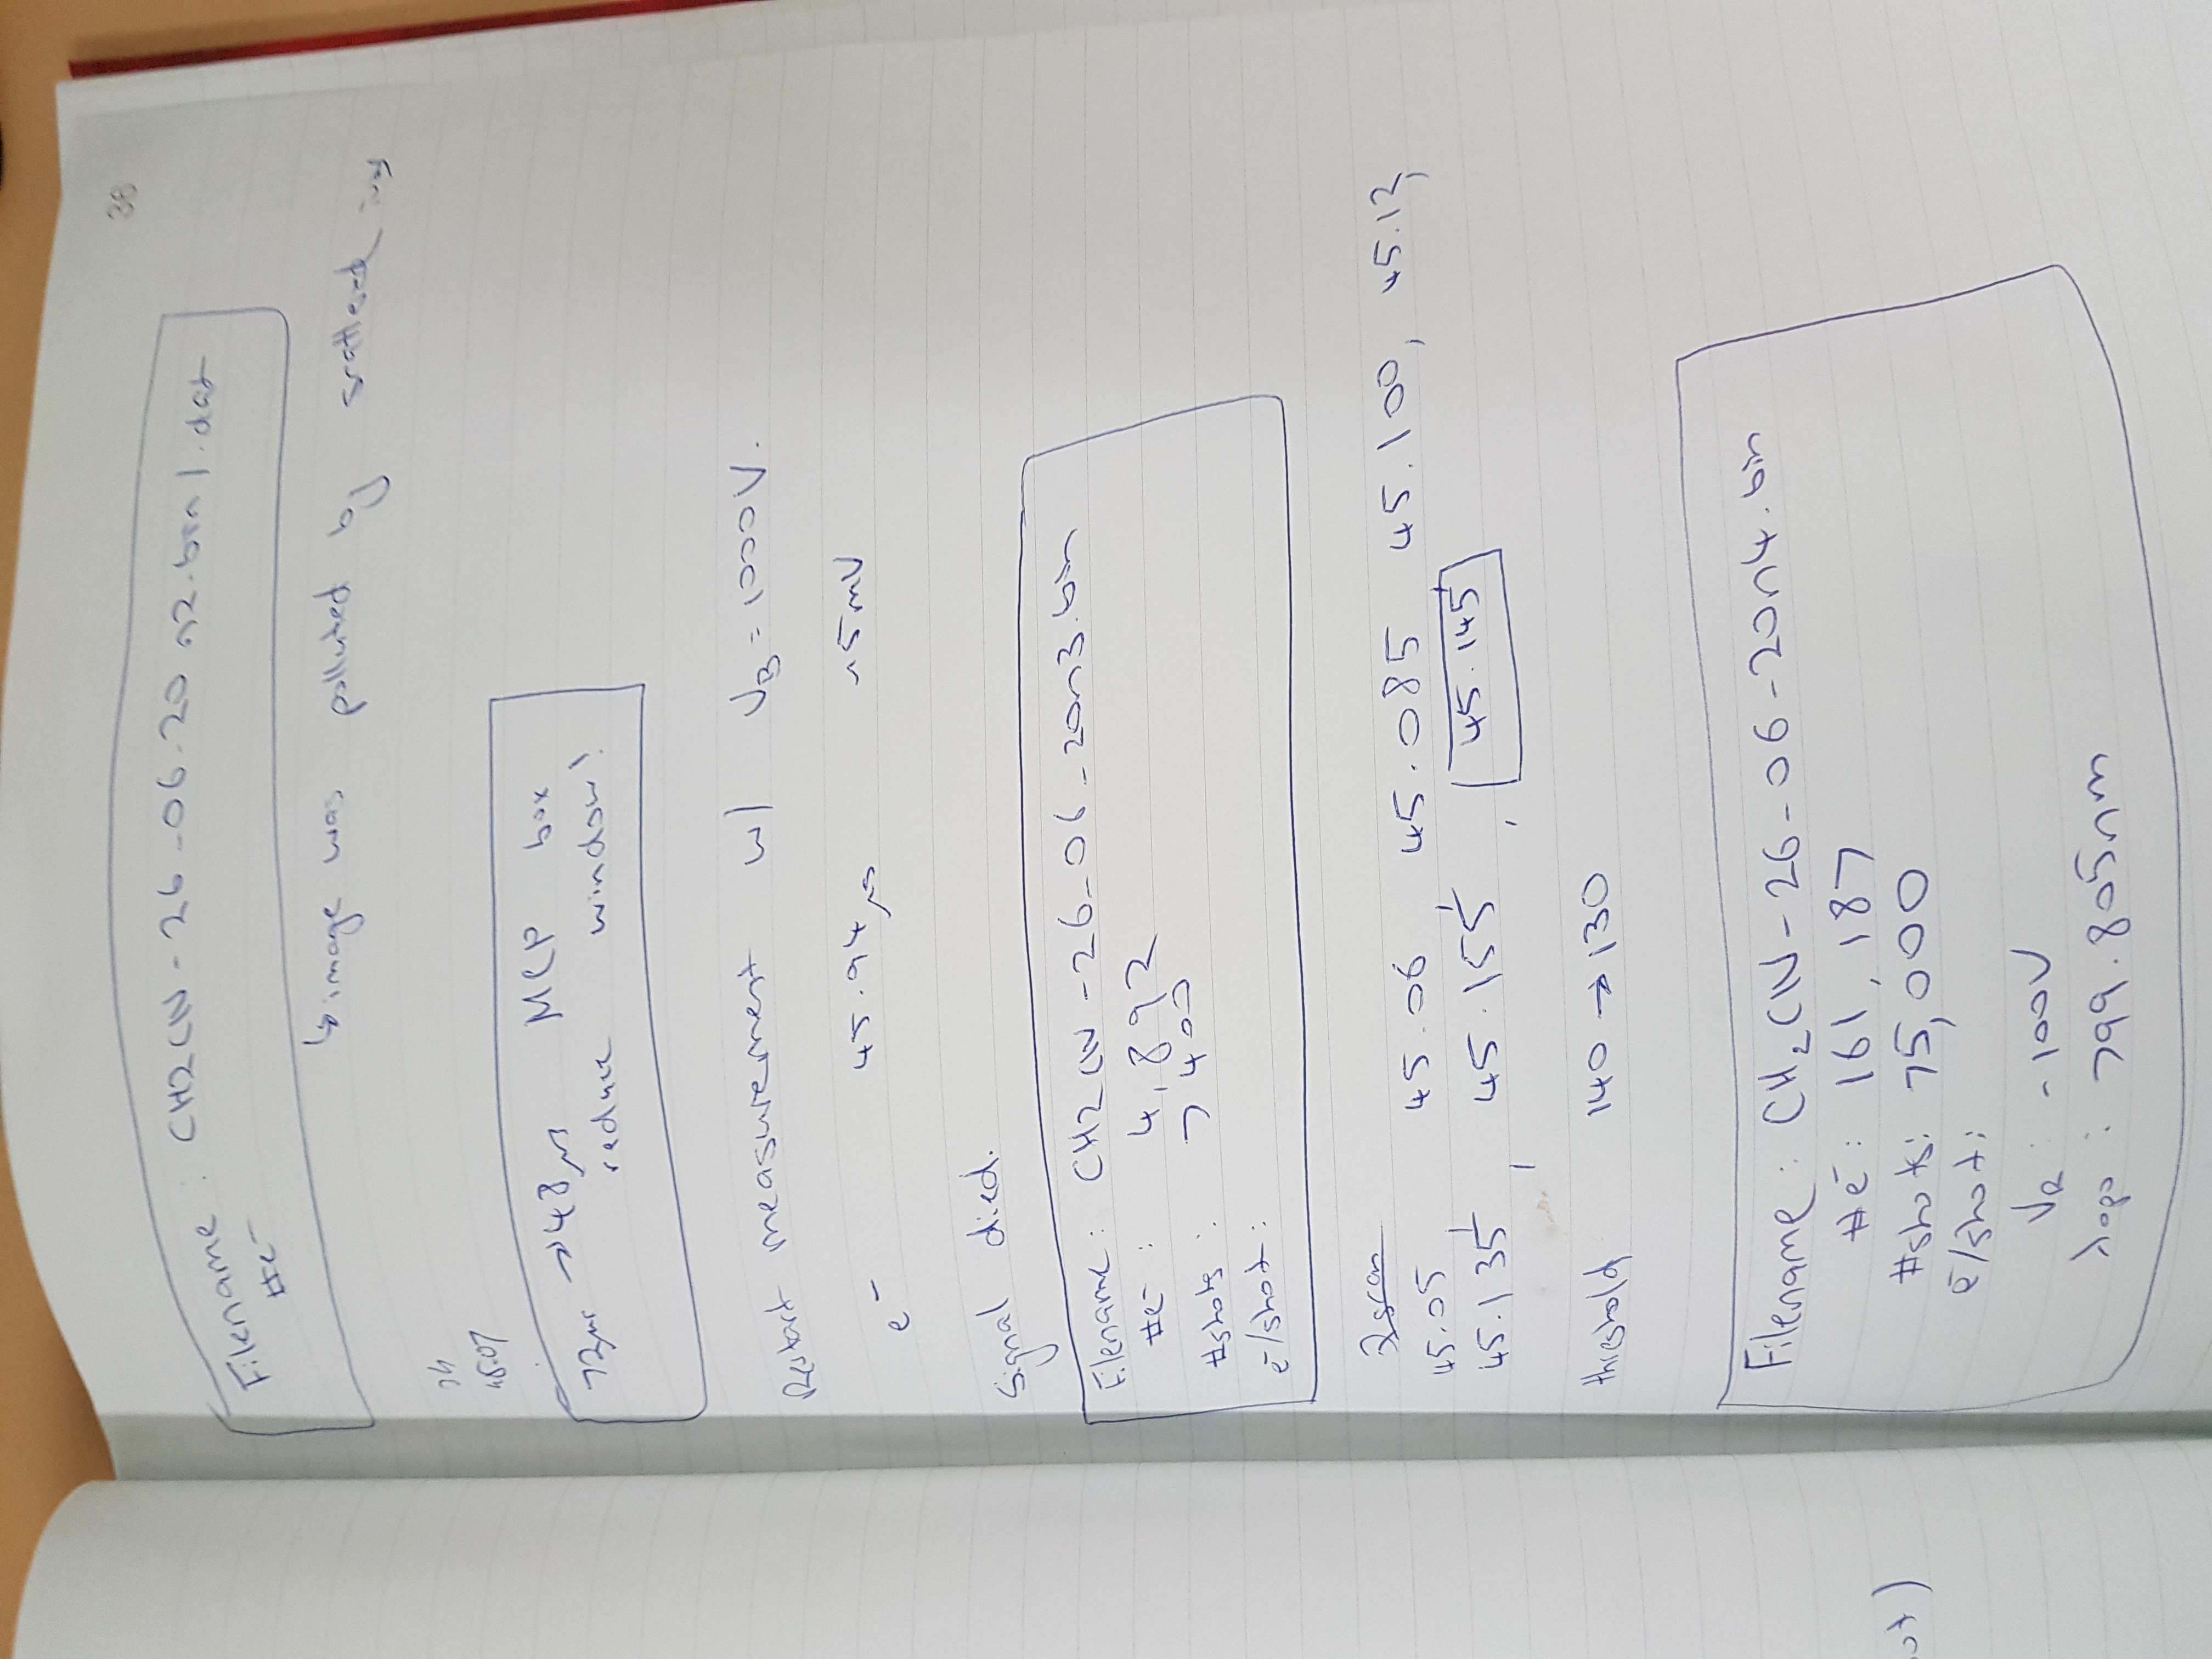 36
Filename : CH2CN-26-06-20n2.bin1.dat
#e⁻
↳ image was polluted by scattered ions
45.07
72μs → 48μs MCP box
reduce window!
Restart measurement w/ V_B = 1000V.
e⁻ 45.94μs ~5mV
Signal died.
Filename : CH2CN-26-06-20n3.bin
#e⁻ : 4,892
#shots : 7400
e⁻/shot :
45.05, 45.06, 45.085, 45.100, 45.12,
45.135, 45.155, 45.145
threshold 140 → 130
Filename : CH₂CN-26-06-20n4.bin
#e⁻ : 161,187
#shots : 75,000
e⁻/shot :
V_R : -100V
λopo : 799.805nm
ot)